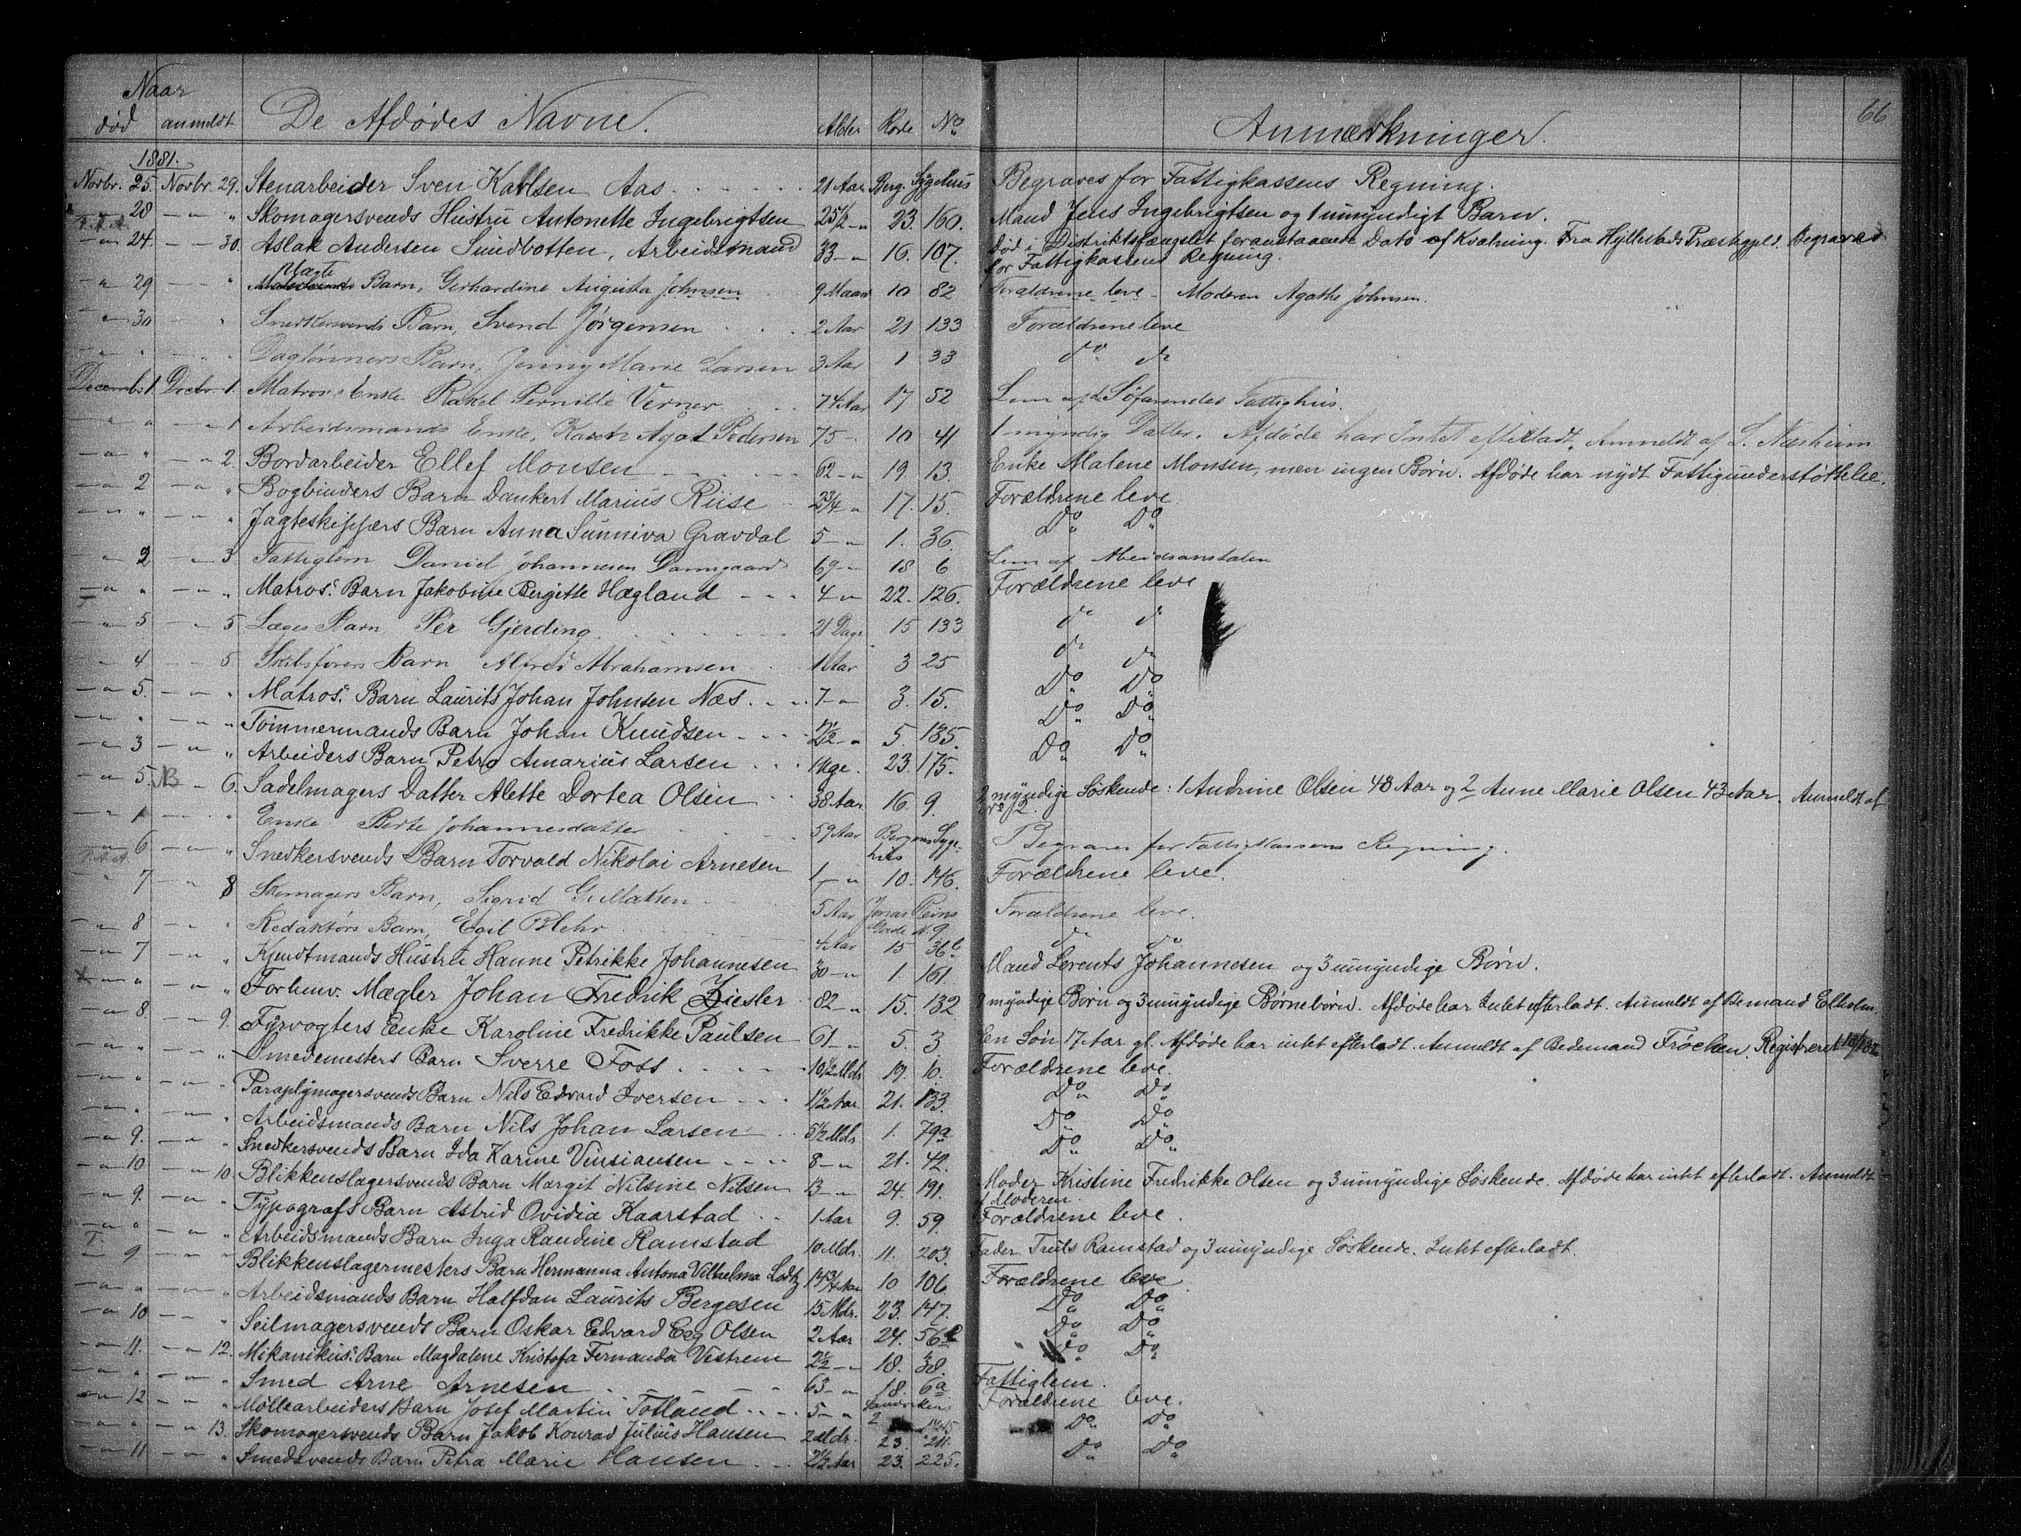 66
Naar
død anmeldt De Afdødes Navne. Alder Rode No Anmærkninger.
1881.
Novbr. 25. Novbr. 29. Stenarbeider Sven Karlsen Aas 21 Aar Berg. Sygehus Begraves for Fattigkassens Regning.
28 — " — " Skomagersvends Hustru Antonette Ingebrigtsen 25 1/2 — " 23. 160. Mand Jens Ingebrigtsen og 1 umyndigt Barn.
— " 24. — — 30. Aslak Andersen Sundbotten, Arbeidsmand 33 — " 16. 107. Død i Distriktsfængslet foranstaaende Dato af Kvælning. Fra Hyllestads Præstegjeld. Begraves
for Fattigkassens Regning.
— " 29 " Barn, Gerhardine Augusta Johnsen 9 Maan 10 82 Forældrene leve — Moderen Agathe Johnsen.
— " 30 " Snedkersvends Barn, Svend Jørgensen 2 Aar 21 133 Forældrene leve
— " " " Dagleiners Barn, Jenny Marie Larsen 3 Aar 1 33 do do
Decembr 1. Decbr. 1. Matros Enke Rakel Pernille Verner 74 Aar 17 52 Lem af Søfarendes Fattighus.
— " " — " 1 Arbeidsmands Enke, Agat Pedersen 75 — 10 41 1 myndig Datter. Afdøde har Intet efterladt. Anmeldt af S. Næsheim
— " " — " 2. Bordarbeider Ellef Monsen 62 — " 19 13. Enke Malene Monsen, men ingen Børn. Afdøde har nydt Fattigunderstøttelse.
— " 2 — " " Bogbinders Barn Dankert Marius Riise 2 3/4 " 17. 15. Forældrene leve.
— " " — " " Jagteskippers Barn Anna Sunniva Gravdal 5 — " 1. 36. Do Do
— " 2 — " 3 Fattiglem Daniel Johannesen Damsgaard 69 — " 18 6 Lem af Arbeidsanstalten
— " " — " " Matros. Barn Jakobine Bergitte Hægland 4 — " 22. 126. Forældrene leve
— " 5 — " 5 Læges Barn Per Gjerding 21 Dage 15 133 do do
— " 4 — " 5 Skibsførers Barn Alfred Abrahamsen 1 Aar 3 25 do do
— " 5. — " " Matros. Barn Laurits Johan Johnsen Næs. 7 — " 3. 15. Do Do
— " " — " " Tømmermands Barn Johan Knudsen 2 1/2 " 5 185. Do Do
— " 3 — " " Arbeiders Barn Petra Amarius Larsen 1 Uge. 23. 175. Do Do
— " 5. NB — " 6. Sadelmagers Datter Alette Dortea Olsen 38 Aar 16. 9. 2 myndige Søskende: 1 Andrine Olsen 48 Aar og 2 Anne Marie Olsen 43 Aar. Anmeldt af
No 2.
— " 1 — " " Enke Berte Johannesdatter 59 Aar Bergens Sygehus Begraves for Fattigkassens Regning.
— " 6 — " " Snedkersvends Barn Torvald Nikolai Arnesen 1 — " 10. 146. Forældrene leve.
— " 7 — " 8 Skomagers Barn, Sigrid Gullaksen 5 Aar Jonas Reins Gade No 9 Forældrene leve.
— " 8 — " " Redaktørs Barn, Egil Blehr 4 Aar 15 36b do do
— " 7 — " " Kjendtmands Hustru Hanne Petrikke Johannesen 30 — " 1 161. Mand Lorents Johannesen og 3 umyndige Børn.
— " " — " " Forhenv. Mægler Johan Fredrik Ziesler 82 — " 15. 132 8 myndige Børn og 3 umyndige Børnebørn. Afdøde har Intet efterladt. Anmeldt af Bemand Ellholm
— " 8. — " 9. Fyrvogters Enke Karoline Fredrikke Paulsen 61 — " 5. 3 En Søn 17 Aar gl. Afdøde har intet efterladt. Anmeldt af Bedemand Frøchen. Registreret
— " " — " " Smedemesters Barn Sverre Foss 10 1/2 Mdr 19. 10. Forældrene leve.
— " " — " " Paraplymagersvends Barn Nils Edvard Iversen 1 1/2 Aar. 21. 133. Do Do
— " " — " " Arbeidsmands Barn Nils Johan Larsen 5 1/2 Mdr. 1. 79a Do Do
— " 9. — " " Snedkersvends Barn Ida Karine Vinsiansen 8 — " 21. 42. Do Do
— " 10 — " 10. Blikkenslagersvends Barn Margit Nilsine Nilsen 13 — " 24. 191. Moder Kristine Fredrikke Olsen og 3 umyndige Søskende. Afdøde har intet efterladt. Anmeldt
af Moderen.
— " 9. — " " Typografs Barn Astrid Ovidia Kaarstad 1 Aar 9. 59. Forældrene leve.
— " " — " " Arbeidsmands Barn Inga Randine Ramstad 10 Mdr. 11. 203. Fader Truls Ramstad og 3 umyndige Søskende. Intet efterladt.
— " 9. — " " Blikkenslagermesters Barn Hermanna Antona Vilhelma Lodtz 14 3/4 Aar 10 106 Forældrene leve
— " " — " " Arbeidsmands Barn Halfdan Laurits Bergesen 15 Mdr. 23. 147. Do Do
— " 10 — " " Seilmagersvends Barn Oskar Edvard Eeg Olsen 2 Aar 24. 56 Do Do
— " 11. — " 12. Mikanikus. Barn Magdalene Kristofa Fernanda Vestrem 2 1/2 — " 18. 38. Do Do
— " " — " " Smed Arne Arnesen 63 — " 18. 6a Fattiglem.
— " 12 — " " Møllearbeiders Barn Josef Martin Totland 5 — " Sandviken 2 Forældrene leve.
— " " — " 13. Skomagersvends Barn Jakob Konrad Julius Hansen 2 Mdr. 23. 211. Do Do
— " 11 — " " Smedsvends Barn Petra Marie Hansen 2 1/2 Aar 23. 225. Do Do